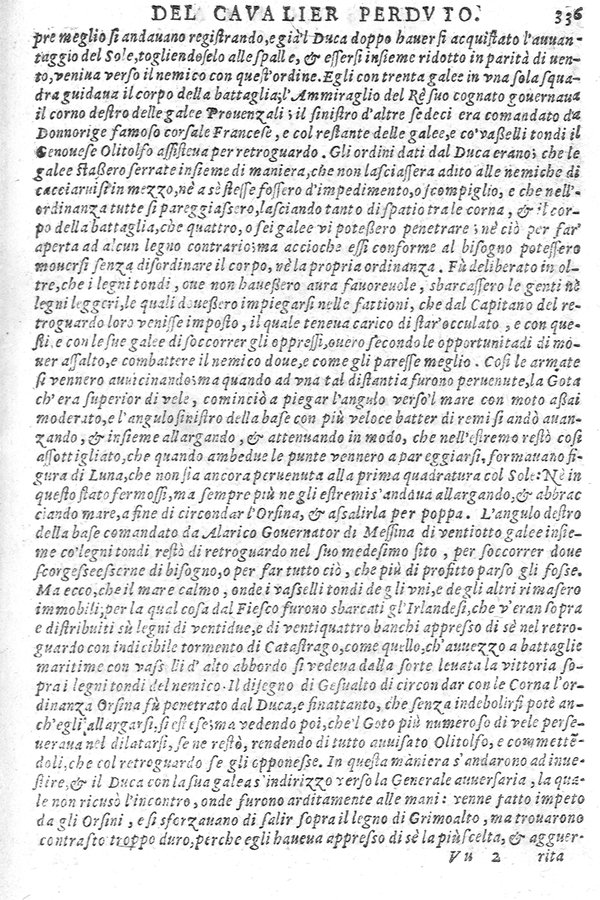 DEL CAVALIER PERDVTO. 336
pre meglio si andauano registrando, e già'l Duca doppo hauer si acquistato l'auuan-
taggio del Sole, togliendoselo alle spalle, & essersi insieme ridotto in parità di uen-
to, veniua verso il nemico con quest'ordine. Egli con trenta galee in vna sola squa-
dra guidaua il corpo della battaglia; l'Ammiraglio del Rè suo cognato gouernaua
il corno destro delle galee Prouenzali; il sinistro d'altre sedeci era comandato da
Donnorige famoso corsale Francese, e col restante delle galee, e co'vaßelli tondi il
Genouese Olitolfo assisteua per retroguardo. Gli ordini dati dal Duca erano; che le
galee staßero serrate insieme di maniera, che non lasciassero adito alle nemiche di
cacciaruisi in mezzo, nè a sè stesse fossero d'impedimento, o scompiglio, e che nell'-
ordinanza tutte si pareggiassero, lasciando tanto di spatio tra le corna, & il cor-
po della battaglia, che quattro, o sei galee vi poteßero penetrare; nè ciò per far'
aperta ad alcun legno contrario; ma accioche essi conforme al bisogno potessero
mouersi senza disordinare il corpo, nè la propria ordinanza. Fù deliberato in ol-
tre, che i legni tondi, oue non haueßero aura fauoreuole, sbarcassero le genti nè
legni leggeri, le quali doueßero impiegarsi nelle fattioni, che dal Capitano del re-
troguardo loro venisse imposto, il quale teneua carico di star'occulato, e con que-
sti, e con le sue galee di soccorrer gli oppressi, ouero secondo le opportunità di mo-
uer assalto, e combattere il nemico doue, e come gli paresse meglio. Così le armate
si vennero auuicinando; ma quando ad vna tal distantia furono peruenute, la Gota
ch'era superior di vele, cominciò a piegar l'angulo verso'l mare con moto aßai
moderato, e l'angulo sinistro della base con più veloce batter di remi si andò auan-
zando, & insieme allargando, & attenuando in modo, che nell'estremo restò così
assottigliato, che quando ambedue le punte vennero a pareggiarsi, formauano fi-
gura di Luna, che non sia ancora peruenuta alla prima quadratura col Sole: Nè in
questo stato fermossi, ma sempre più ne gli estremi s'andaua allargando, & abbrac
ciando mare, a fine di circondar l'Orsina, & assalirla per poppa. L'angulo destro
della base comandato da Alarico Gouernator di Messina di ventiotto galee insie-
me co'legni tondi restò di retroguardo nel suo medesimo sito, per soccorrer doue
scorgesse esserne di bisogno, o per far tutto ciò, che più di profitto parso gli fosse.
Ma ecco, che il mare calmo, onde i vasselli tondi de gli vni, e de gli altri rimasero
immobili; per la qual cosa dal Fiesco furono sbarcati gl'Irlandesi, che v'eran sopra
e distribuiti sù legni di ventidue, e di ventiquattro banchi appresso di sè nel retro-
guardo con indicibile tormento di Catastrago, come quello, ch'auuezzo a battaglie
maritime con vasselli d'alto abbordo si vedeua dalla sorte leuata la vittoria so-
pra i legni tondi del nemico. Il disegno di Gesualto di circondar con le Corna l'or-
dinanza Orsina fù penetrato dal Duca, e fin attanto, che senza indebolirsi potè an-
ch'egli allargarsi, si estese; ma vedendo poi, che'l Goto più numeroso di vele perse-
ueraua nel dilatarsi, se ne restò, rendendo di tutto auuisato Olitolfo, e commettē-
doli, che col retroguardo se gli opponesse. In questa maniera s'andarono ad inue-
stire, & il Duca con la sua galea s'indirizzo verso la Generale auuersaria, la qua-
le non ricusò l'incontro, onde furono arditamente alle mani: venne fatto impeto
da gli Orsini, e si sforzauano di salir sopra il legno di Grimoalto, ma trouarono
contrasto troppo duro, perche egli haueua appresso di sè la più scelta, & agguer-
Vu 2 rita